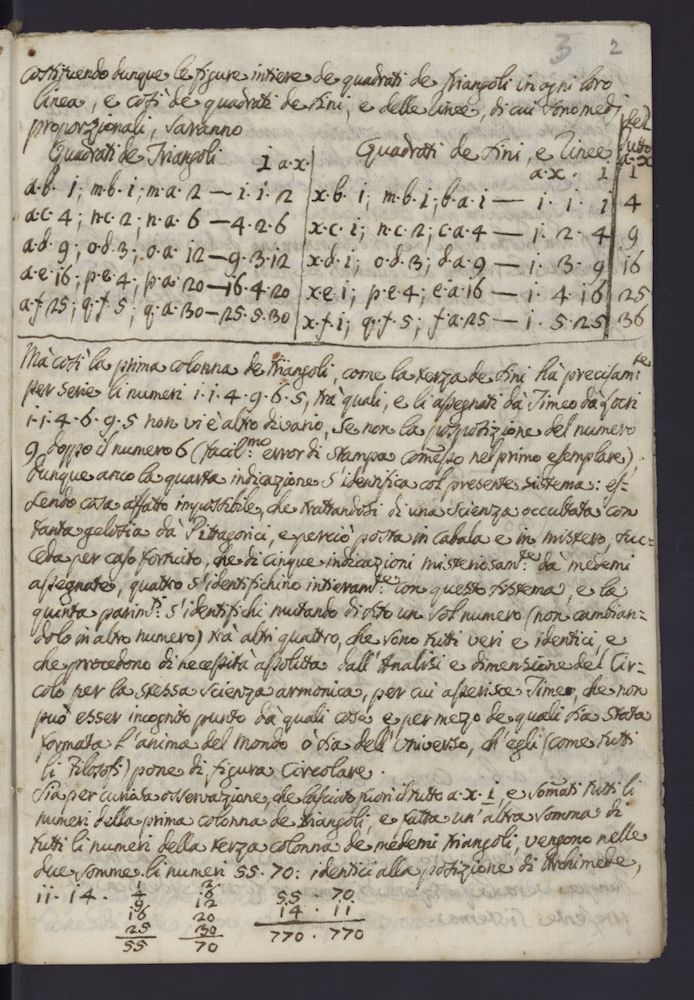 3 2
costituendo dunque le figure intiere de quadrati de triangoli in ogni loro
linea, e così de quadrati de sini, e delle linee, di cui sono medj
proporzionali, saranno
Quadrati de Triangoli 1 a.x. Quadrati de sini, e linee del tutto
a.x. 1 a.x 1
a.b. 1; m.b.1; m.a. 2 — 1. 1. 2 x.b 1; m.b.1; b.a.1 — 1. 1. 1 4
a.c. 4; n.c. 2; n.a. 6 — 4. 2. 6 x.c. 1; n.c. 2; c.a. 4 — 1. 2. 4 9
a.d. 9; o.d. 3; o.a. 12 — 9. 3. 12 x.d. 1; o.d. 3; d.a. 9 — 1. 3. 9 16
a.e. 16; p.e. 4; p.a. 20 — 16. 4. 20 x.e. 1; p.e. 4; e.a. 16 — 1. 4. 16 25
a.f. 25; q.f. 5; q.a. 30 — 25. 5. 30 x.f. 1; q.f. 5; f.a. 25 — 1. 5. 25 36
Mà così la prima colonna de triangoli, come la terza de sini hà precisam.te
per serie li numeri 1. 1. 4. 9. 6. 5, trà quali, e li assegnati dà Timeo dà Locri
1. 1. 4. 6. 9. 5 non vi è altro divario, se non la posposizione del numero
9 doppo il numero 6 (facil.mo error di stampa comesso nel primo esemplare).
Dunque anco la quarta indicazione s'identifica col presente sistema: es-
sendo cosa affatto impossibile, che trattandosi di una scienza occultata con
tanta gelosia dà Pitagorici, e perciò posta in cabala e in mistero, suc=
ceda per caso fortuito, che di cinque indicazioni misteriosam.te dà medemi
assegnate, quattro s'identifichino intieram.te con questo sistema, e la
quinta parim.ti s'identifichi mutando di sito un sol numero (non cambian=
dolo in altro numero) trà altri quattro, che sono tutti veri e identici, e
che procedono di necessità assoluta dall'Analisi e dimensione del Cir=
colo per la stessa scienza armonica, per cui asserisce Timeo, che non
può esser incognito punto dà quali cose e per mezo de quali sia stata
formata l'anima del mondo ò sia dell'Universo, ch'egli (come tutti
li Filosofi) pone di figura Circolare.
Sia per curiosa osservazione, che lasciato fuori il tutto a.x. 1, e somati tutti li
numeri della prima colonna de triangoli, e fatta un'altra somma di
tutti li numeri della terza colonna de medemi triangoli, vengono nelle
due somme li numeri 55. 70: identici alla posizione di Archimede,
11. 14. 1 2
4 6 55. 70
9 12 14. 11
16 20 770. 770
25 30
55 70